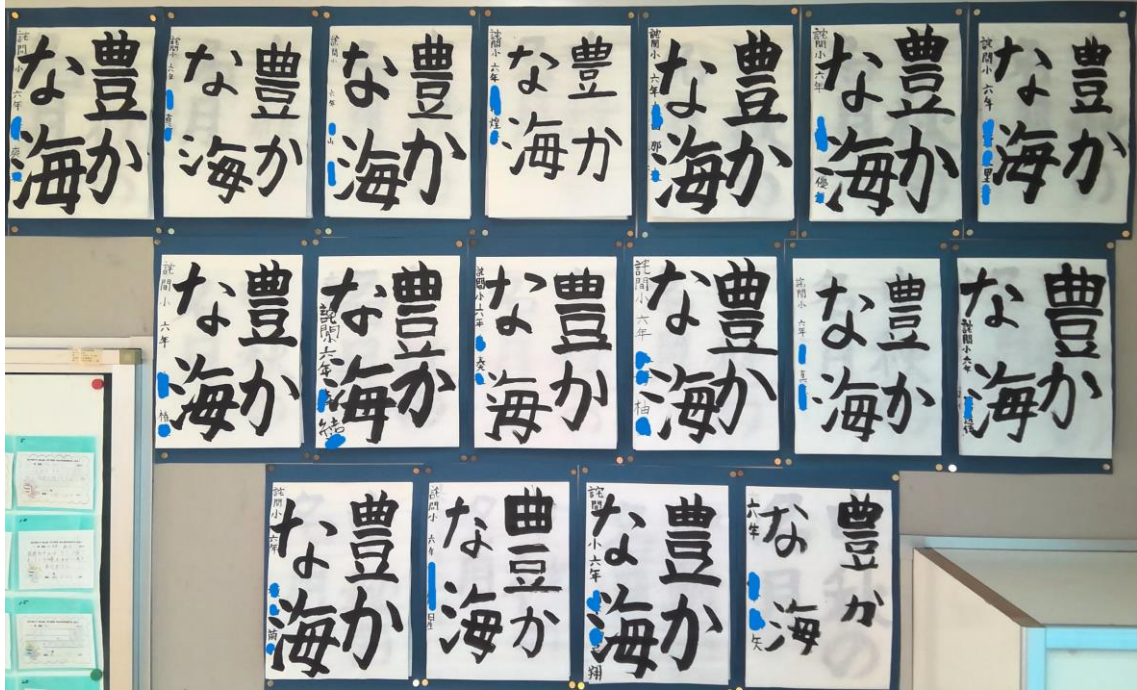 豊か
な海
詫間小 六年
豊か
な海
詫間小 六年
豊か
な海
詫間小 六年 山
豊か
な海
詫間小 六年 煌
豊か
な海
詫間小 六年 那
豊か
な海
詫間小 六年 優
豊か
な海
詫間小 六年 里
豊か
な海
詫間小 六年
豊か
な海
詫間 六年
豊か
な海
詫間小 六年
豊か
な海
詫間小 六年 柚
豊か
な海
詫間小 六年 真
豊か
な海
詫間小 六年
豊か
な海
詫間小 六年
豊か
な海
詫間小 六年
豊か
な海
詫間小 六年 翔
豊か
な海
六年 矢